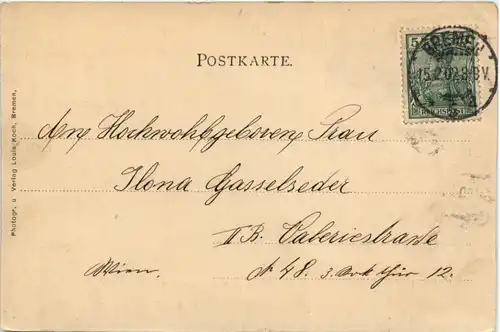 POSTKARTE.
5
BREMEN
15.2.02.8-9V.
Photogr. u. Verlag Louis Koch, Bremen.
Hochwohlgeboren Frau
Ilona Gasselseder
II B. Valeriestrasse
Wien. № 48. 3. Thür 12.